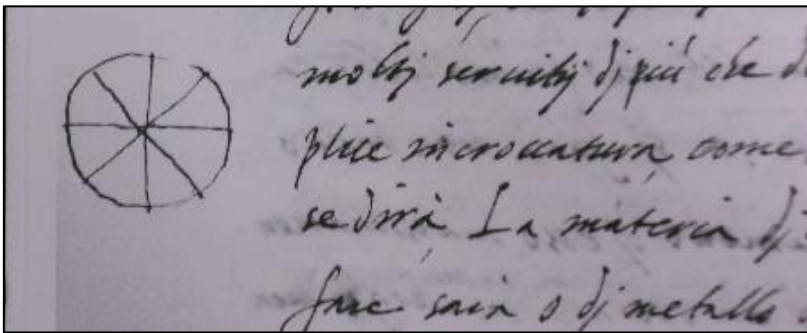 moltj seruitij dj piú che d
plice incroccatura, come
se dirà La materia dj
fare saia o dj metallo